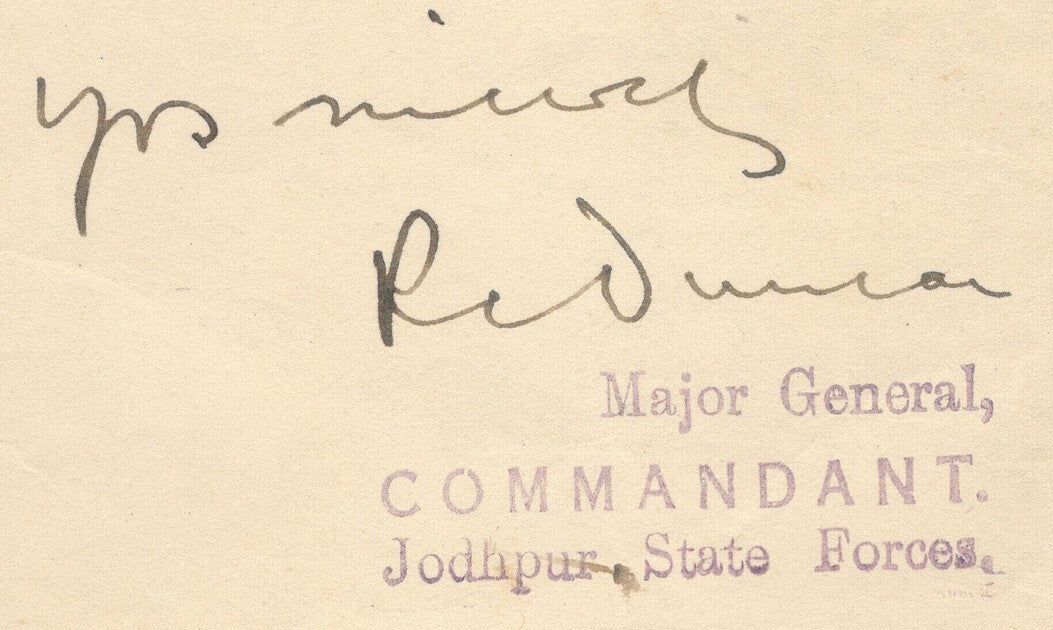 Yrs sincerely
R C Duncan
Major General,
COMMANDANT.
Jodhpur, State Forces.